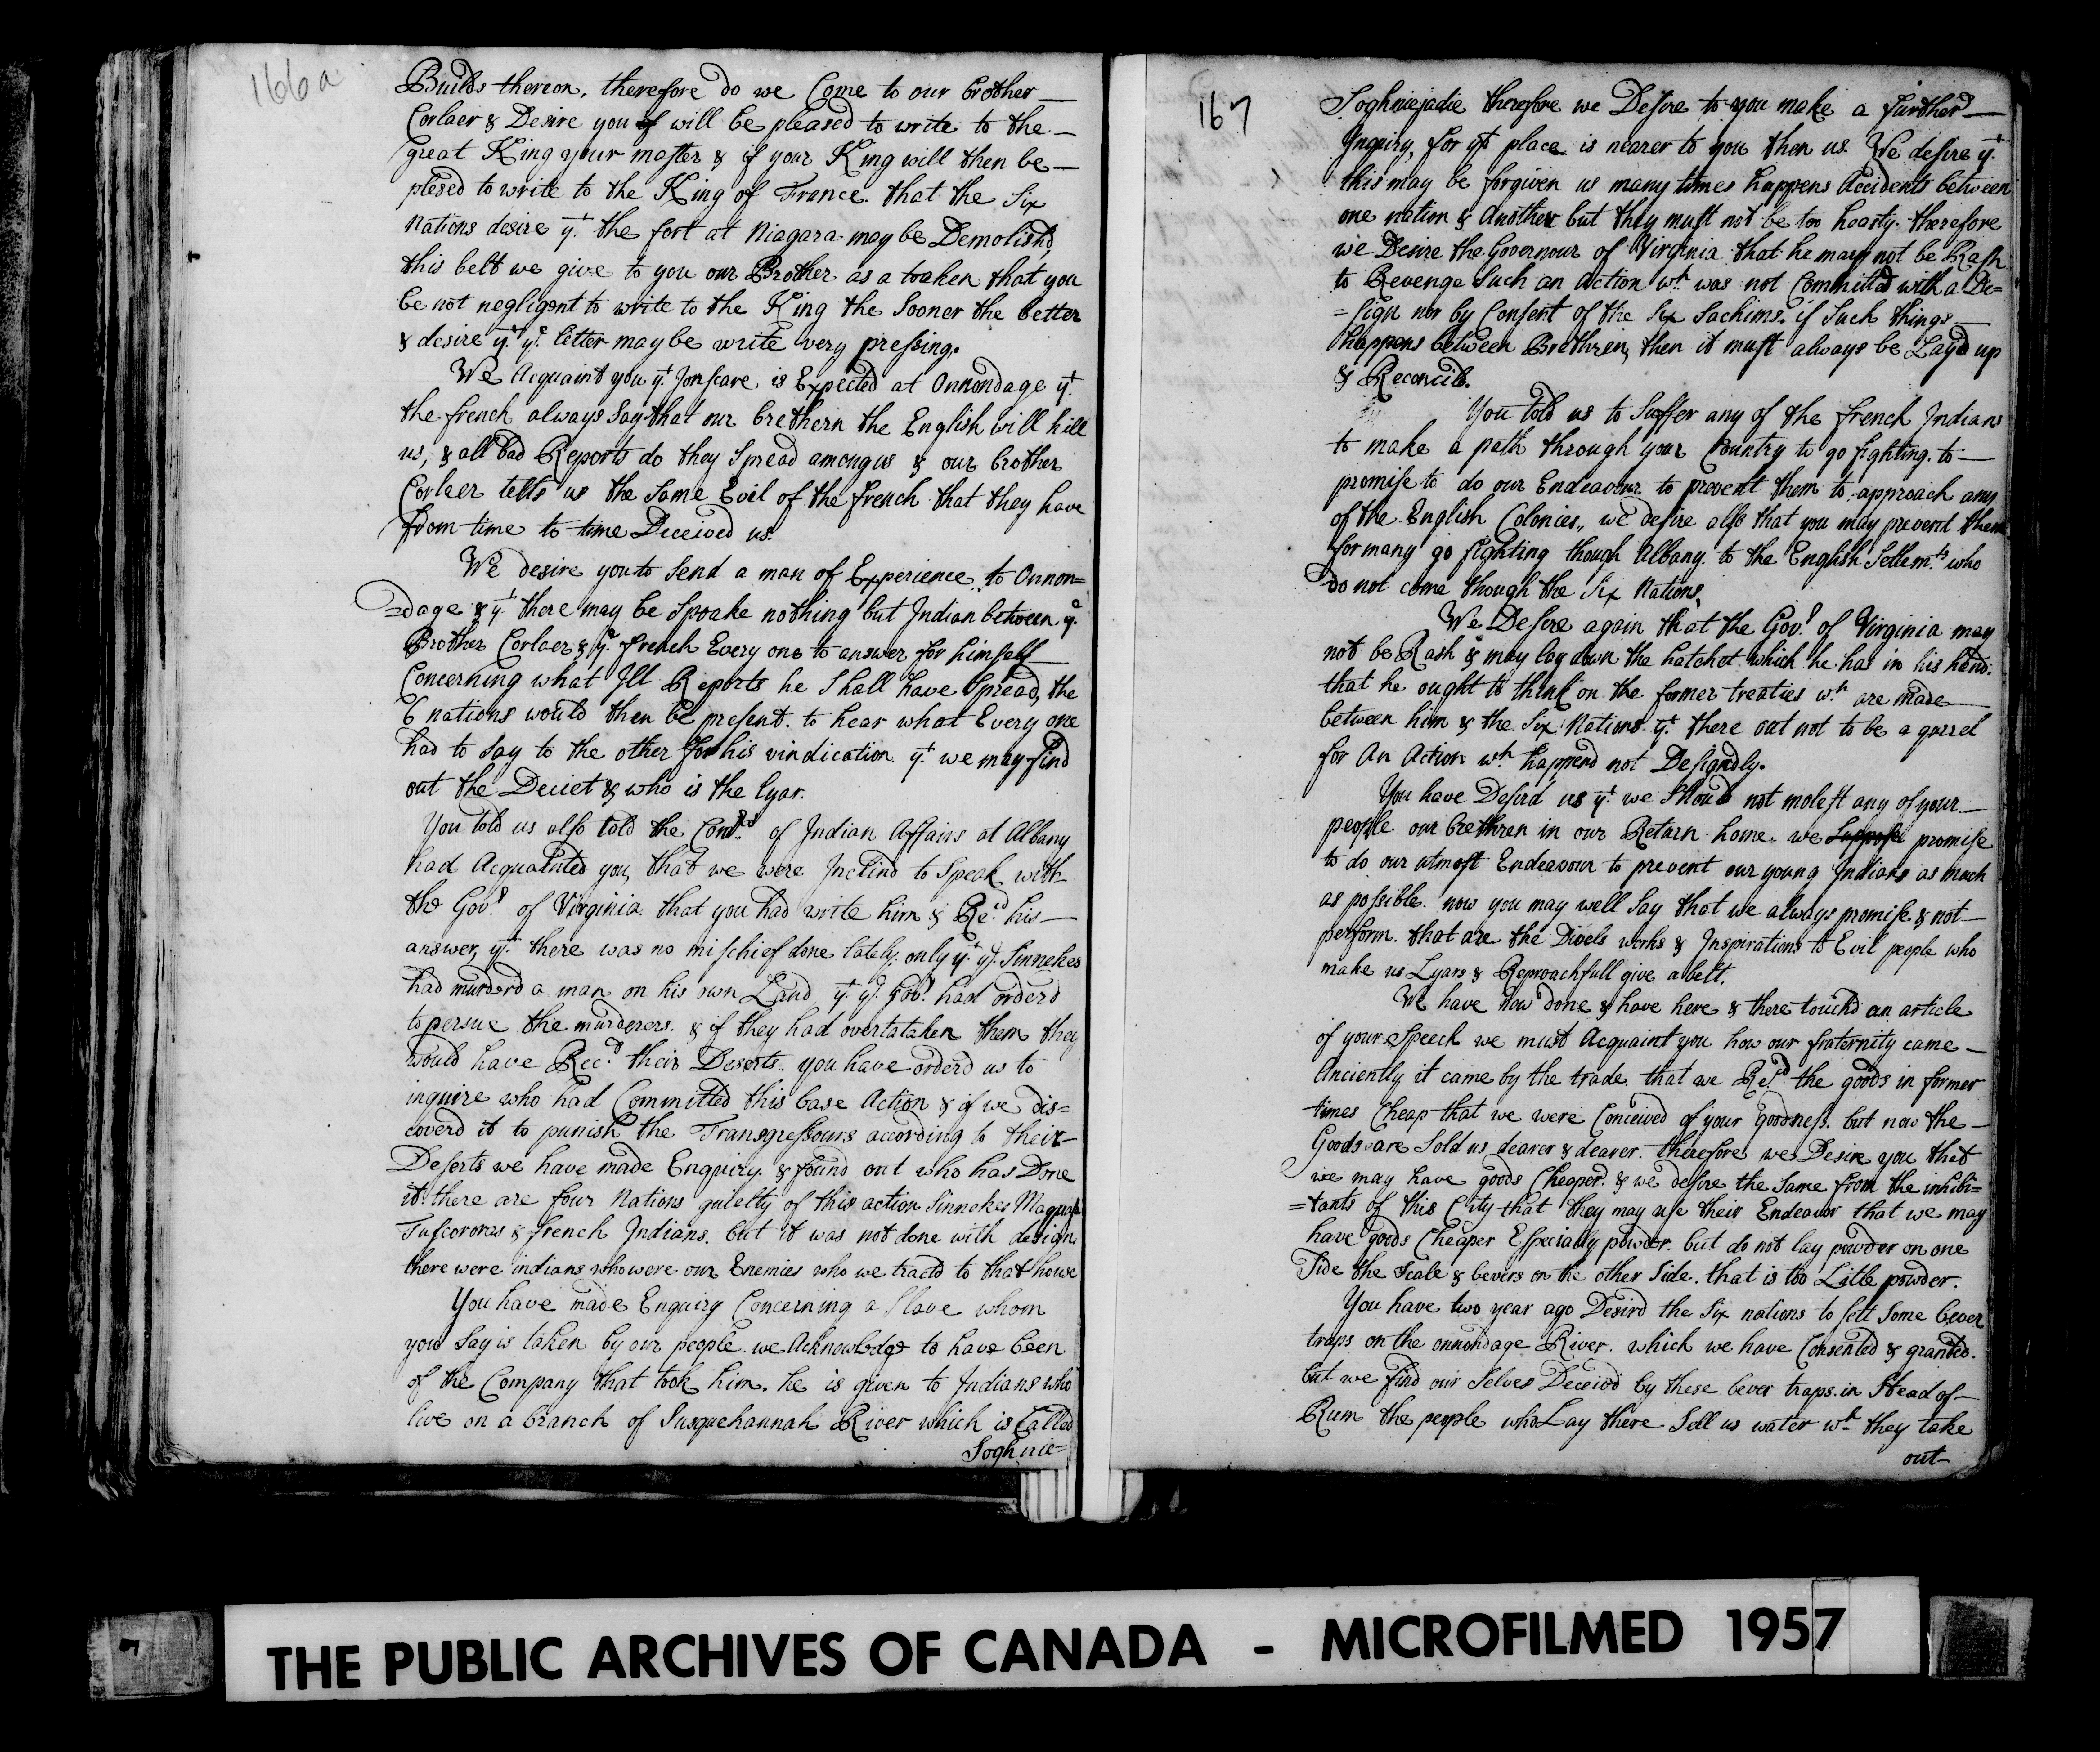 166a
Builds thereon, therefore do we Come to our brother
Corlaer & Desire you if will be pleased to write to the
great King your master & if your King will then be
plesed to write to the King of France that the Six
Nations desire yt. the fort at Niagara may be Demolish'd
this belt we give to you our Brother as a toaken that you
be not negligent to write to the King the Sooner the better
& desire yt. ye. letter may be write very pressing.
We Acquaint you yt. Jonscare is Expected at Onnondage yt.
the french always Say that our brethern the English will kill
us, & all bad Reports do they Spread among us & our brother
Corlaer tells us the Same Evil of the french that they have
from time to time Deceived us.
We desire you to Send a man of Experience to Onnon=
=dage & yt. there may be Spoake nothing but Indian between ye.
Brother Corlaer & ye. french Every one to answer for himself
Concerning what Ill Reports he Shall have Spread, the
6 nations would then be present to hear what Every one
had to Say to the other for his vindication yt. we may find
out the Deciet & who is the lyar.
You told us also told the Comrs. of Indian Affairs at Albany
had Acquainted you, that we were Inclind to Speak with
the Govr. of Virginia that you had write him & Recd. his
answer, yt. there was no mischief done lately only yt. ye. Sinnekes
had murderd a man on his own Land yt. ye. Govr. had orderd
to persue the murderers. & if they had overtataken them they
would have Recd. their Deserts. you have orderd us to
inquire who had Committed this base Action & if we dis=
coverd it to punish the Transgressours according to their
Deserts we have made Enquiry & found out who has Done
it there are four Nations guielty of this action Sinnekes Maquas
Tuscorores & french Indians. but it was not done with design
there were indians who were our Enemies who we tractd to that house
You have made Enquiry Concerning a Slave whom
you Say is taken by our people we Acknowledge to have been
of the Company that took him. he is given to Indians who
live on a branch of Susquehannah River which is Called
Soghnie=
167
Soghniejadie therefore we Desire to you make a further
Inquiry, for yt place is nearer to you then us. We desire yt.
this may be forgiven us many times happens Accidents between
one nation & Another but they must not be too hearty. therefore
we Desire the Governour of Virginia that he may not be Rash
to Revenge Such an Action wh. was not Committed with a De=
=sign nor by Consent of the Six Sachims. if Such things
happens between Brethren, then it must always be Layd up
& Reconcile.
You told us to Suffer any of the french Indians
to make a path through your Country to go fighting. to
promise to do our Endeavour to prevent them to approach any
of the English Colonies,, we desire also that you may prevent them
for many go fighting though Albany to the English Settlemts. who
do not come though the Six Nations.
We Desire again that the Govr. of Virginia may
not be Rash & may lay down the hatchet which he has in his hand.
that he ought to think on the former treaties wh. are made
between him & the Six Nations yt. there out not to be a qurrel
for An Action wh. happend not Designdly.
You have Desird us yt. we Should not molest any of your
people our brethren in our Return home. we Suppose promise
to do our utmost Endeavour to prevent our young Indians as much
as possible. now you may well Say that we always promise & not
perform. that are the Divels works & Inspirations to Evil people who
make us Lyars & Reproachfull give a belt.
We have now done & have here & there touchd an article
of your Speech we must Acquaint you how our fraternity came
Anciently it came by the trade that we Recd. the goods in former
times Cheap that we were Conceived of your goodness. but now the
Goods are Sold us dearer & dearer. therefore we Desire you that
we may have goods Cheaper. & we desire the Same from the inhibi=
=tants of this City that they may use their Endeavor that we may
have goods Cheaper Especially powder. but do not lay powder on one
Side the Scale & bevers on the other Side. that is too Litle powder.
You have two year ago Desird the Six nations to sett Some bever
traps on the onnondage River. which we have Consented & granted.
but we find our Selves Deceivd by these bever traps. in Stead of
Rum the people who Lay there Sell us water wh. they take
out
THE PUBLIC ARCHIVES OF CANADA - MICROFILMED 1957